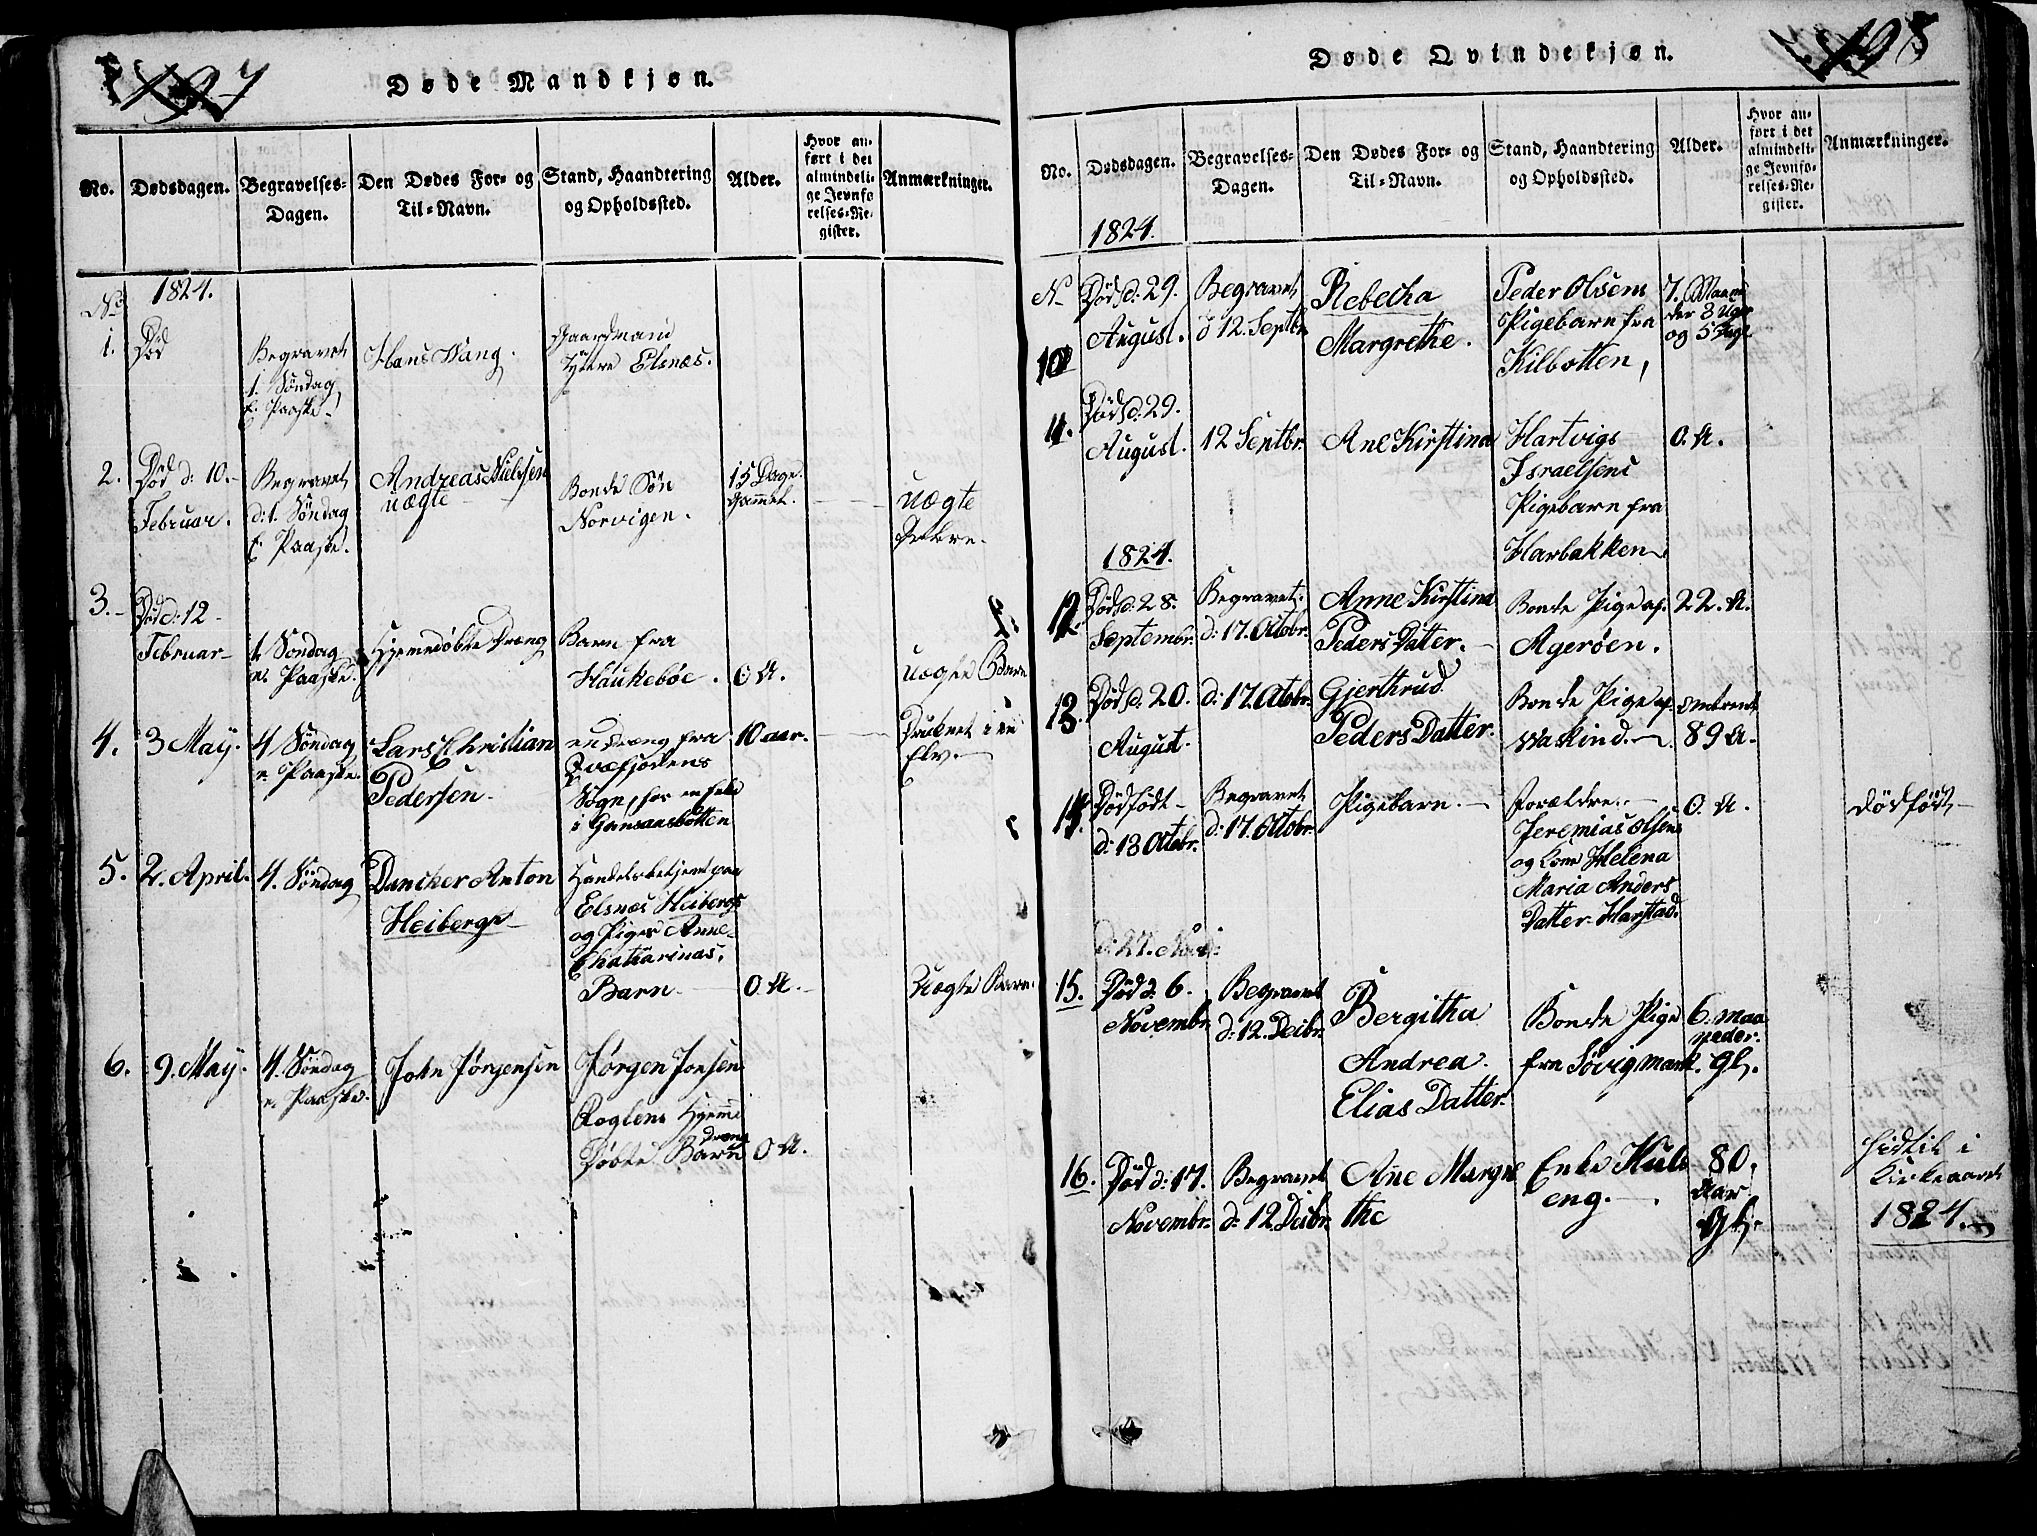 197
Døde Mandkjøn.
No.
Dødsdagen.
Begravelses-
Dagen.
Den Dødes For- og
Til-Navn.
Stand, Haandtering
og Opholdssted.
Alder.
Hvor an-
ført i det
almindeli-
ge Jevnfø
relses-Re-
gister.
Anmærkninger.
1824.
No
1.
Død
Begravet
1. Søndag
E. Paaske.
Hans Wang.
Gaardmand
Yttere Elsnæs.
2.
Død d: 10.
Februar.
Begravet
d: 1. Søndag
E. Paaske.
Andreas Nielsen
uægte
Bonde Søn
Norvigen.
15 Dage
Gammel.
uægte
3.
Død d: 12
Februar
1. Søndag
e. Paaske.
Hjemmedøbte Dreng
Barn fra
Haukebøe.
0 A.
uægte Barn
4.
3 May.
4 Søndag
e. Paaske.
Lars Christian
Pedersen
en Dreng fra
Qvæfjordens
Sogn,
i Gansaasbotten
10 aar.
Druknet i en
Elv.
5.
2. April.
4. Søndag
Dancker Anton
Heiberg
Handelsbetjent paa
Elsnæs Heibergs
og Piges Anne
Chatharinas,
Barn
0 A.
Uægte Barn
6.
9. May.
4. Søndag
e. Paaske.
John Jørgensen
Jørgen Jonsen
Roglens Hjemme
Døbte Dreng Barn
0 A.
198
Døde Qvindekjøn.
No.
Dødsdagen.
Begravelses-
Dagen.
Den Dødes For- og
Til-Navn.
Stand, Haandtering
og Opholdssted.
Alder.
Hvor an-
ført i det
almindeli-
ge Jevnfø-
relses-Re-
gister.
Anmærkninger.
1824.
N
10
Død d: 29.
August.
Begravet
d 12. Septbr
Rebecha
Margrethe.
Peder Olsens
Pigebarn fra
Kilbotten,
7. Maane
der 3 Uger
og 5 Dage
11.
Død d: 29.
August.
12 Septbr.
Ane Kirstina
Hartvigs
Israelsens
Pigebarn fra
Harbakken
0. A.
1824.
12.
Død d: 28.
Septembr.
Begravet
d: 17. Octobr.
Anne Kirstina
Peders Datter.
Bonde Pige af
Agerøen.
22. A.
13.
Død d: 20.
August.
d: 17. Octobr.
Gjerthrud
Peders Datter.
Bonde Pige af
Waskind.
omtrent
89 A.
14.
Dødfødt
d: 13 Octobr.
Begravet
d: 17. Octobr.
Pigebarn.
Forældre.
Jeremias Olsen
og Kone Helena
Maria Anders
Datter Harstad.
0. A.
Dødfødt
15.
Død d: 6.
Novembr.
Begravet
d: 12. Decbr.
Bergitha
Andrea
Elias Datter.
Bonde Pige
fra Sørvigmark.
6. maa
neder.
Gl.
16.
Død d: 17.
Novembr.
Begravet
d: 12 Decbr.
Ane Margre
the
Enke Kuls
eng.
80.
Aar
Gl.
Hidtil i
Kirkeaaret
1824.